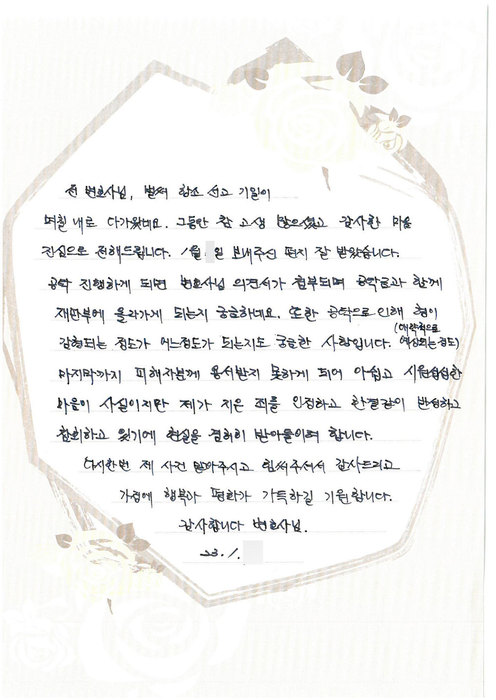 전 변호사님, 벌써 항소 선고 기일이
며칠 내로 다가왔네요. 그동안 참 고생 많으셨고 감사한 마음
진심으로 전해드립니다. 1월 일 보내주신 편지 잘 받았습니다.
공탁 진행하게 되면 변호사님 의견서가 첨부되며 공탁금과 함께
재판부에 올라가게 되는지 궁금하네요. 또한 공탁으로 인해 형이
감형되는 정도가 어느정도가 되는지도 궁금한 사항입니다. (대략적으로
예상되는 정도)
마지막까지 피해자분께 용서받지 못하게 되어 아쉽고 시원섭섭한
마음이 사실이지만 제가 지은 죄를 인정하고 한결같이 반성하고
참회하고 있기에 현실을 겸허히 받아들이려 합니다.
다시한번 제 사건 맡아주시고 힘써주셔서 감사드리고
가정에 행복과 평화가 가득하길 기원합니다.
감사합니다 변호사님.
23. 1.